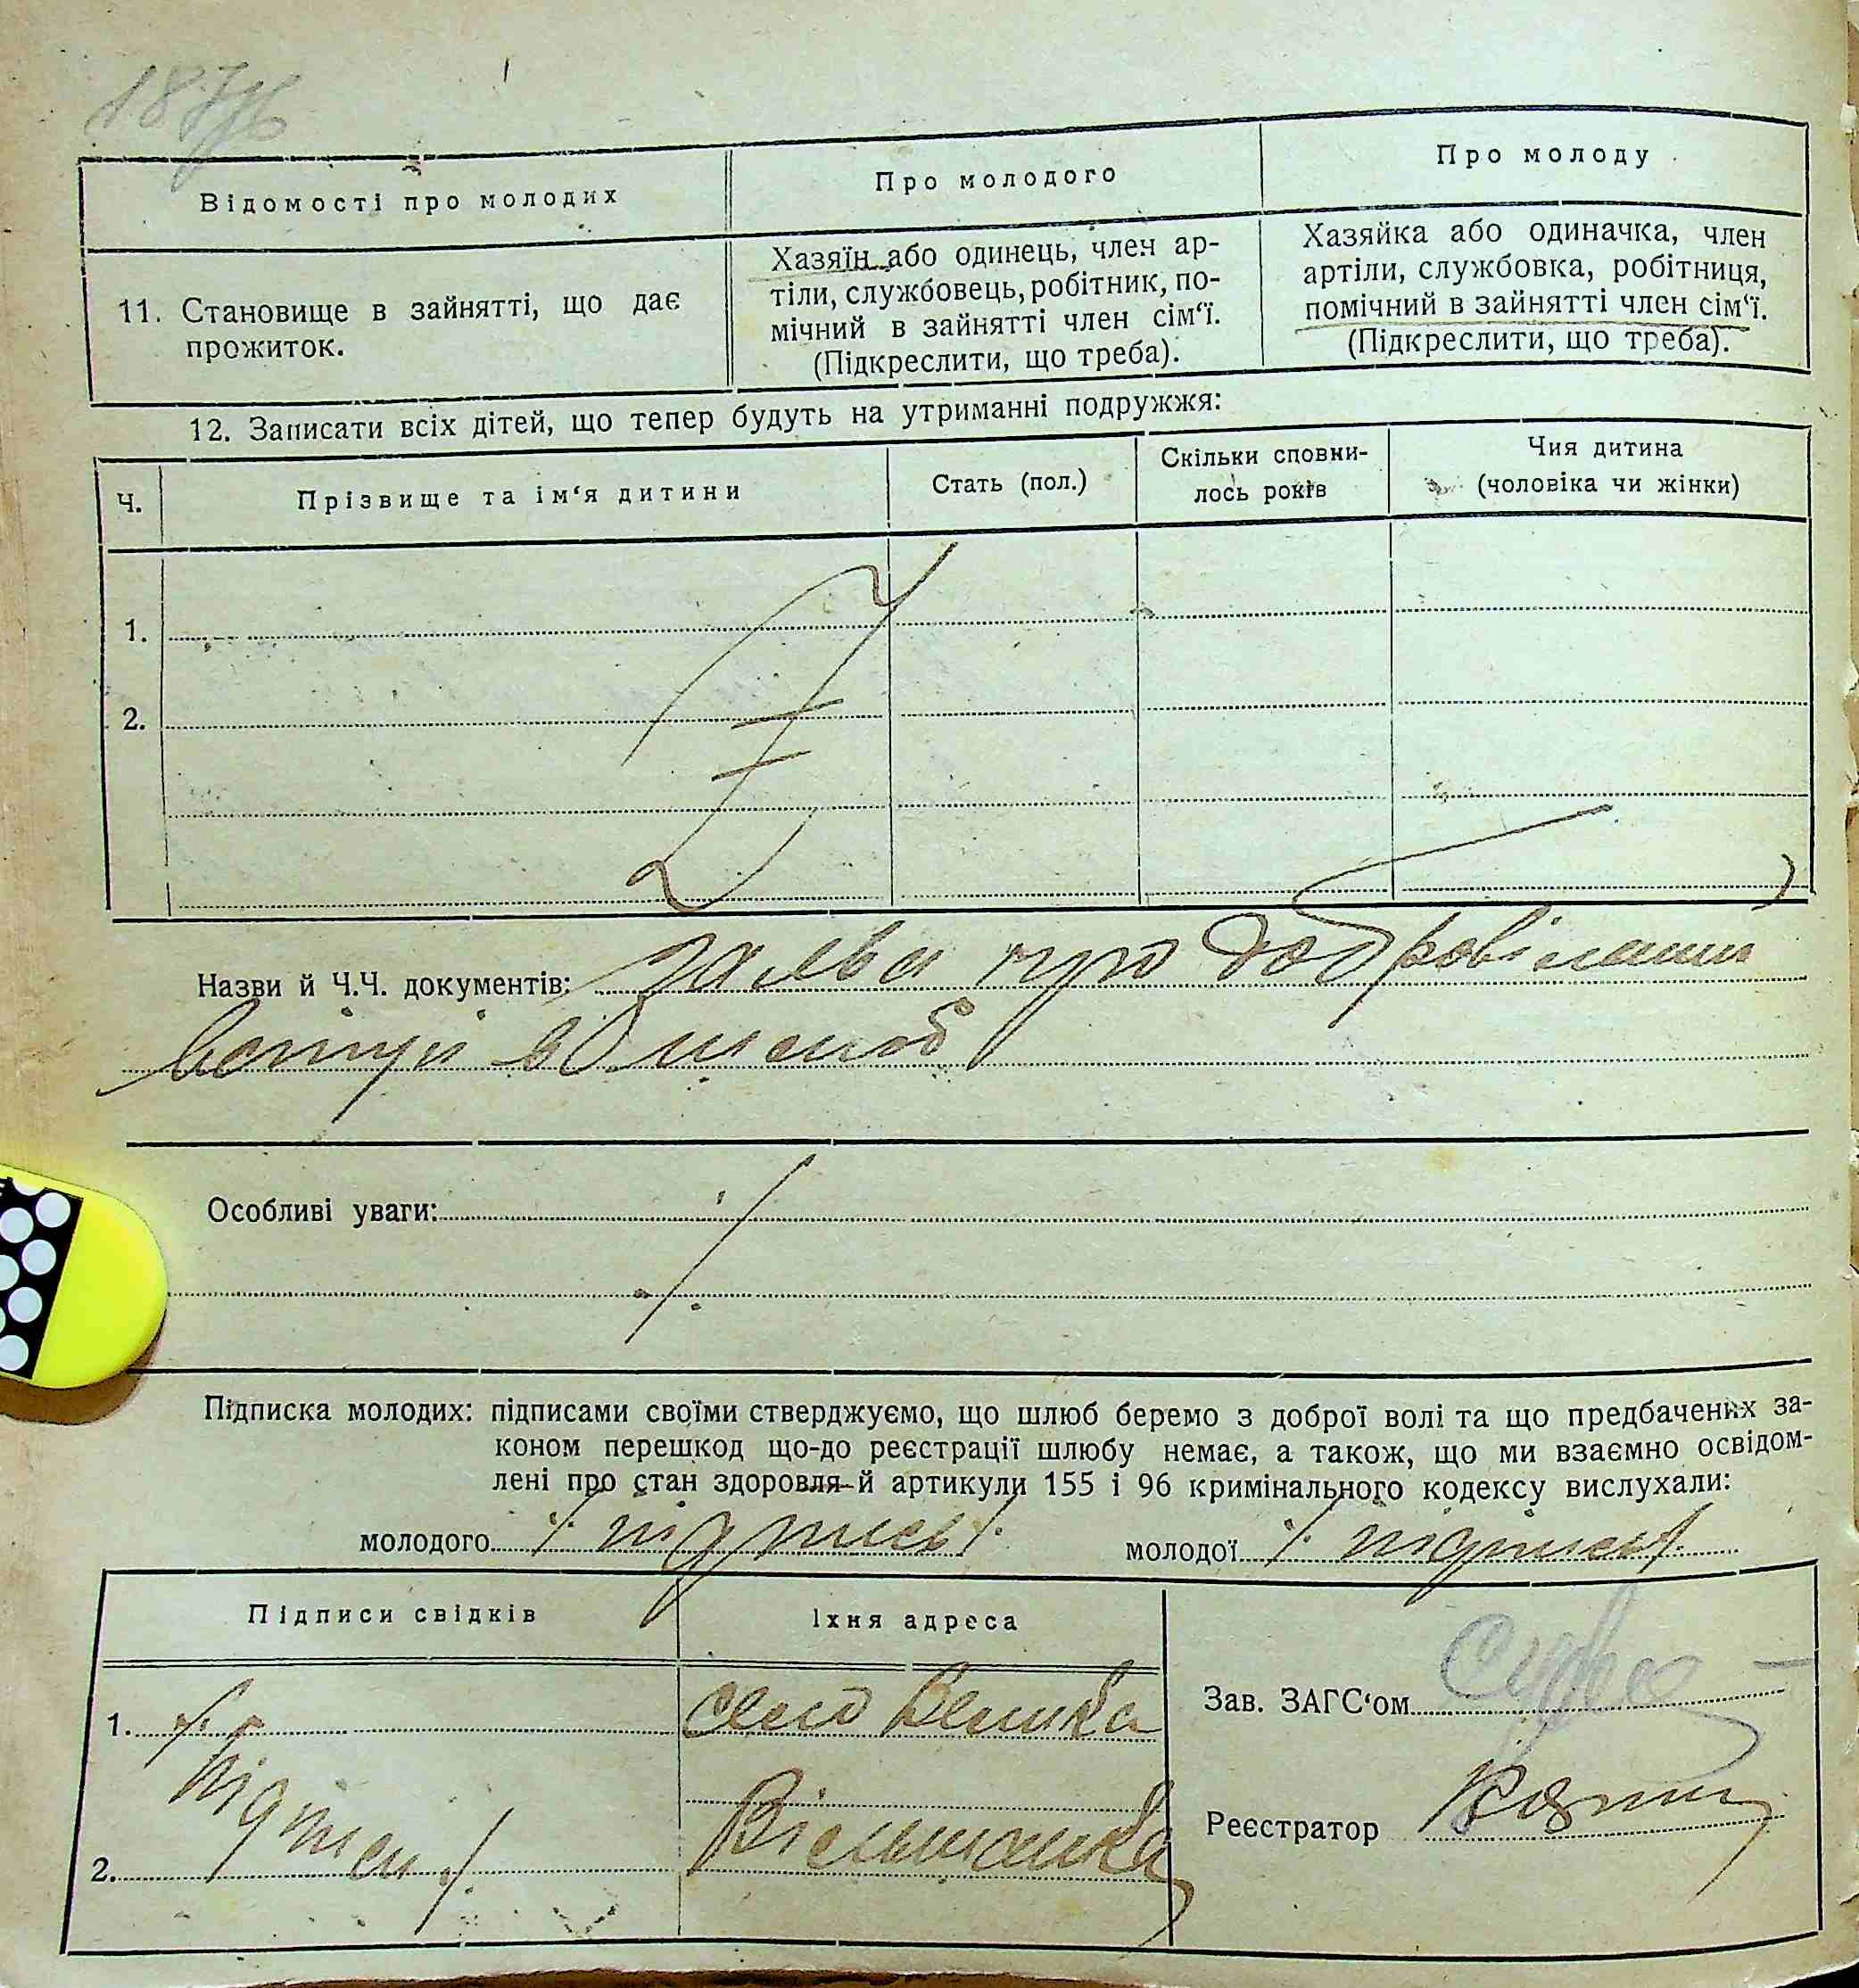 Відомості про молодих
Про молодого
Про молоду
11. Становище в зайнятті, що дає
прожиток.
Хазяїн або одинець, член ар-
тіли, службовець, робітник, по-
мічний в зайнятті член сім‘ї.
(Підкреслити, що треба).
Хазяйка або одиначка, член
артіли, службовка, робітниця,
помічний в зайнятті член сім‘ї.
(Підкреслити, що треба).
12. Записати всіх дітей, що тепер будуть на утриманні подружжя:
Ч.
Прізвище та ім‘я дитини
Стать (пол.)
Скільки сповни-
лось років
Чия дитина
(чоловіка чи жінки)
1.
2.
Назви й Ч.Ч. документів: заява про добровільний
вступ в шлюб
Особливі уваги:
Підписка молодих: підписами своїми стверджуємо, що шлюб беремо з доброї волі та що предбачених за-
коном перешкод що-до реєстрації шлюбу немає, а також, що ми взаємно освідом-
лені про стан здоровля й артикули 155 і 96 кримінального кодексу вислухали:
молодого /підпись/ молодої /підпись/
Підписи свідків
Їхня адреса
1.
село Велика
Зав. ЗАГС‘ом
/підписи/
Вільшанка
Реєстратор
2.